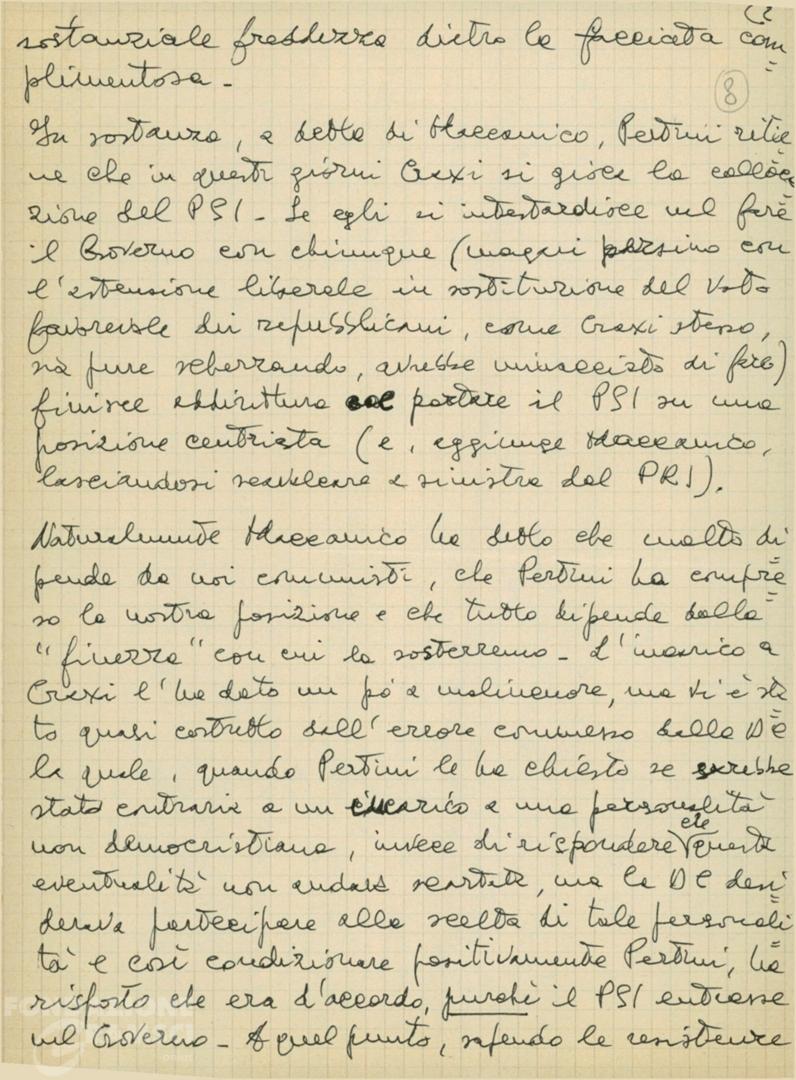 sostanziale freddezza dietro la facciata com=
plimentosa -
8
In sostanza, a detta di Maccanico, Pertini ritie=
ne che in questi giorni Craxi si gioca la colloca
zione del PSI - Se egli si intestardisce nel fare
il Governo con chiunque (magari persino con
l'astensione liberale in sostituzione del voto
favorevole dei repubblicani, come Craxi stesso,
sia pure scherzando, avrebbe minacciato di fare)
finisce addirittura col portare il PSI su una
posizione centrista (e, aggiunge Maccanico,
lasciandosi scavalcare a sinistra dal PRI).
Naturalmente Maccanico ha detto che molto di=
pende da noi comunisti, che Pertini ha compre=
so la nostra posizione e che tutto dipende dalla
"finezza" con cui la sosterremo - L'incarico a
Craxi l'ha dato un pò a malincuore, ma vi è sta=
to quasi costretto dall'errore commesso dalla DC
la quale, quando Pertini le ha chiesto se sarebbe
stata contraria a un incarico a una personalità
non democristiana, invece di rispondere che questa
eventualità non andava scartata, ma la DC desi=
derava partecipare alla scelta di tale personali=
tà e così condizionare positivamente Pertini, ha
risposto che era d'accordo, purché il PSI entrasse
nel Governo - A quel punto, sapendo le resistenze